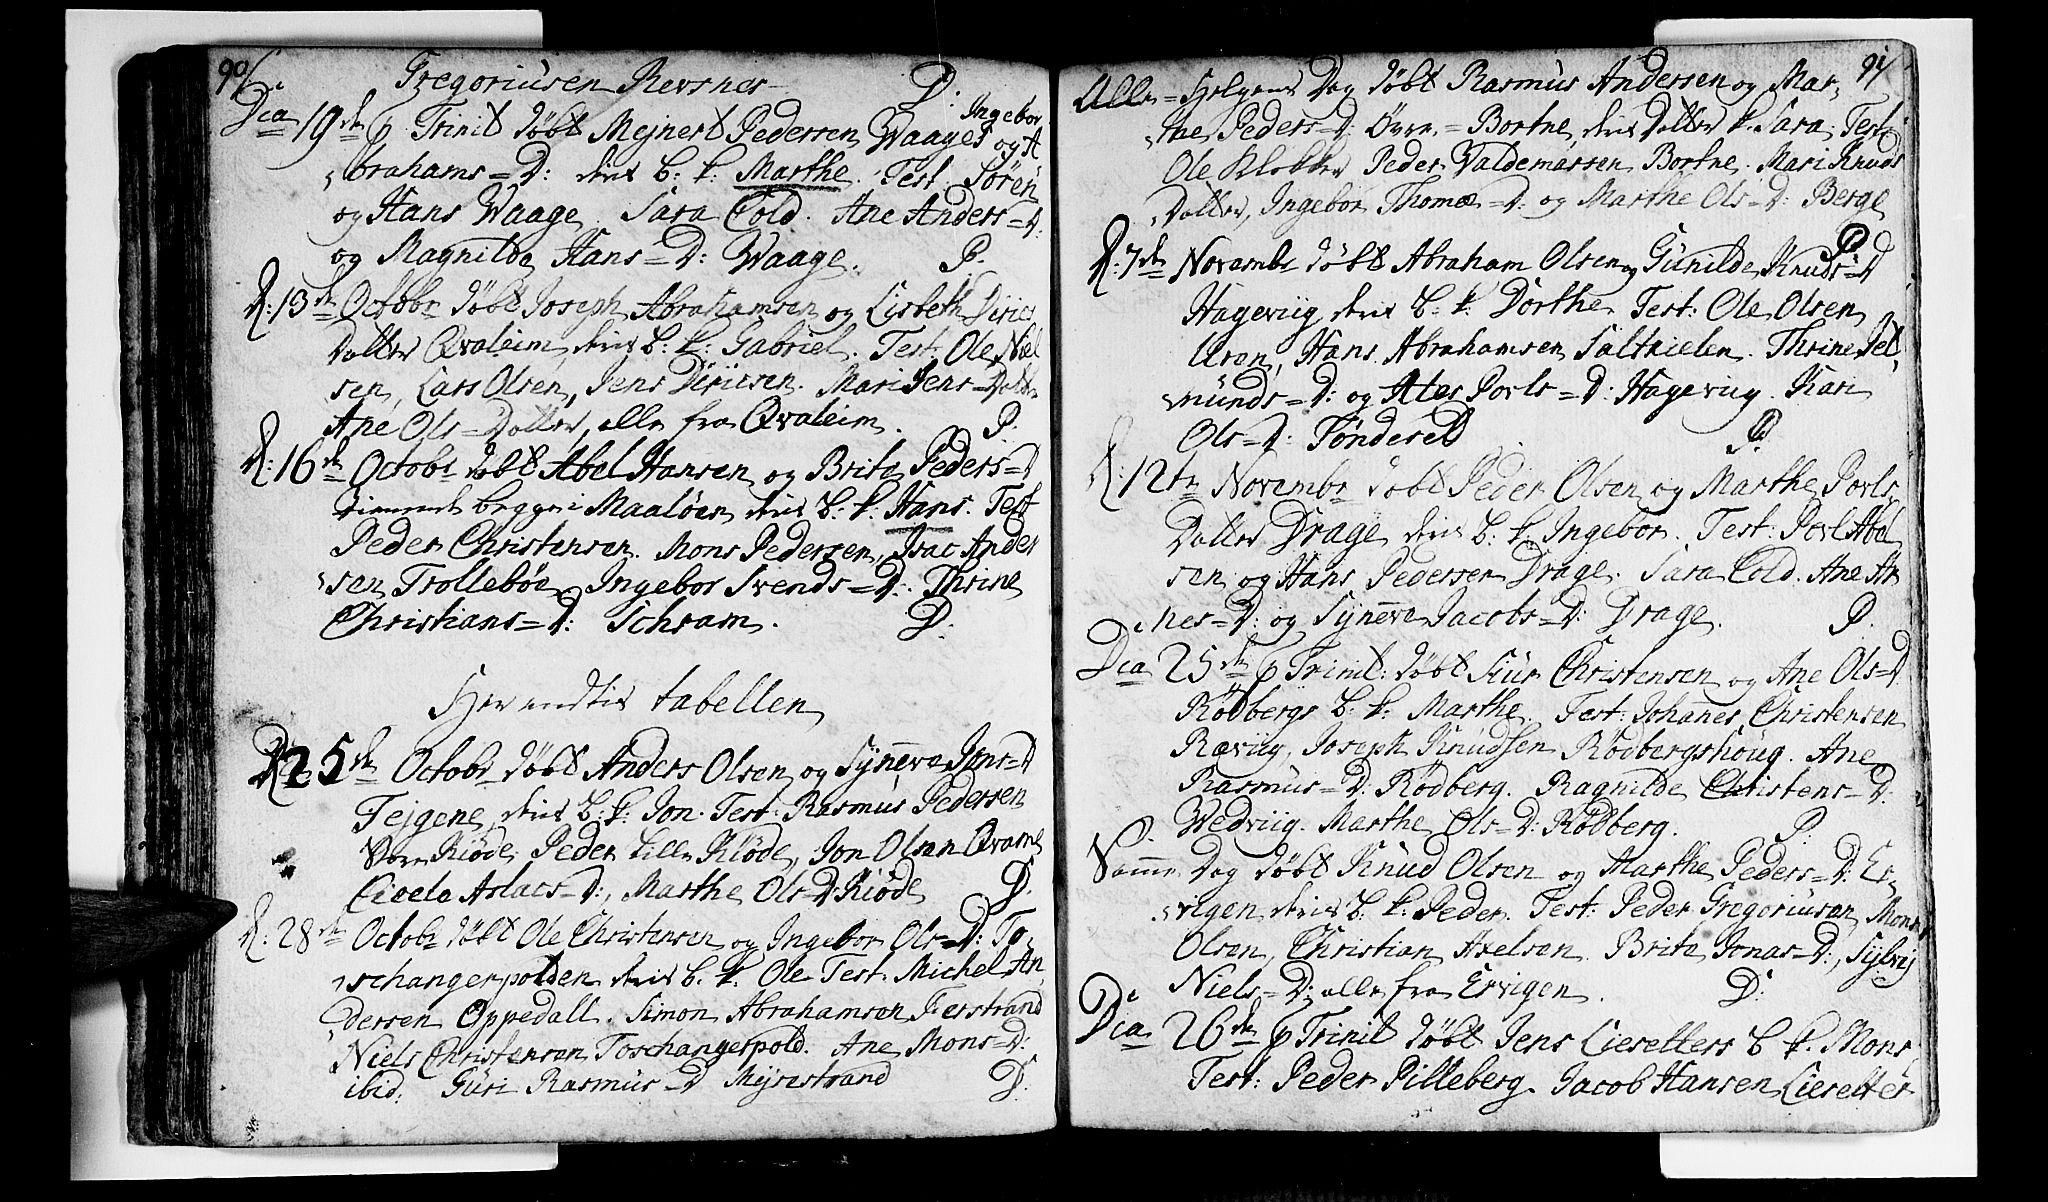 90/
Gregoriusen Revsnes D:
Dca 19de p Trinit døbt Mejnert Pedersen Waages og Ingebor A
brahams=D: deris b: k: Marthe. Test: Søren
og Hans Waage. Sara Cold. Ane Anders=D:
og Magnilda Hans=D: Waage. P.
d: 13de Octobr døbt Joseph Abrahamsen og Lisbeth Dirics
Datter Qvaleim deris b: k: Gabriel. Test: Ole Niel
sen, Lars Olsen, Jens Diricsen. Mari Jens=Datter
Ane Ols=Datter, alle fra Qvaleim. P.
d: 16de Octobr døbt Abel Hansen og Brite Peders=D
tienende begge i Maaløen deris b: k: Hans. Test
Peder Christensen. Mons Pedersen, Isac Ander
sen Trollebøe, Ingebor Svends=D: Thrine
Christians=D: Schram. D:
Her endtis tabellen
d 25de Octobr døbt Anders Olsen og Synneva Jens=D
Fejgene, deris b: k: Jon. Test: Rasmus Pedersen
Kiøde, Peder Lille Kiøde, Jon Olsen Qvame
Ciecela Aslacs=D:, Marthe Ols=D: Kiøde D:
d: 28de Octobr døbt Ole Christensen og Ingebor Ols=D: To
schangerpolden deris b: k: Ole Test: Michel An
dersen Oppedall. Simon Abrahamsen Fierstrand
Niels Christensen Toschangerpold. Ane Mons=D:
ibid: Guri Rasmus=D Myrestrand D:
91/
Alle=Helgens Dag døbt Rasmus Andersen og Mar
the Peders=D: Øvre=Bortne, deris Datter k: Sara, Test:
Ole Klokker Peder Valdemarsen Bortne. Mari Knuds
Datter, Ingebor Thomæ=D: og Marthe Ols=D: Berge
P
d: 7de Novembr døbt Abraham Olsen og Gunilde Knuds=D
Hageviig deris b: k: Dorthe Test: Ole Olsen
Aron, Hans Abrahamsen Saltskielen. Thrine Sel
munds=D: og Ales Povls=D: Hageviig. Kari
Ols=D: Sønderel P.
d: 12te Novembr døbt Peder Olsen og Marthe Povls
Datter Drage deris b: k: Ingebor. Test: Povl Abel
sen og Hans Pedersen Drage. Sara Cold. Ane Ar
nes=D: og Synneva Jacobs=D: Drage. P.
Dca 25de p Trinit: døbt Siur Christensen og Ane Ols=D
Rødbergs b: k: Marthe. Test: Johanes Christensen
Ræviig, Joseph Knudsen Rødbergshoug. Ane
Rasmus=D: Rødberg. Ragnilde Christens=D:
Wedviig. Marthe Ols=D: Rødberg. P.
Samme Dag døbt Knud Olsen og Marthe Peders=D: Er
vigen deris b: k: Peder. Test: Peder Gregoriusen, Mons
Olsen, Christian Axelsen. Brite Jonas=D:, Sylvej
Niels=D: alle fra Ervigen. D:
Dca 26de p Trinit døbt Jens Liesetters b k: Mons
Test: Peder Pilleberg. Jacob Hansen Liesetter